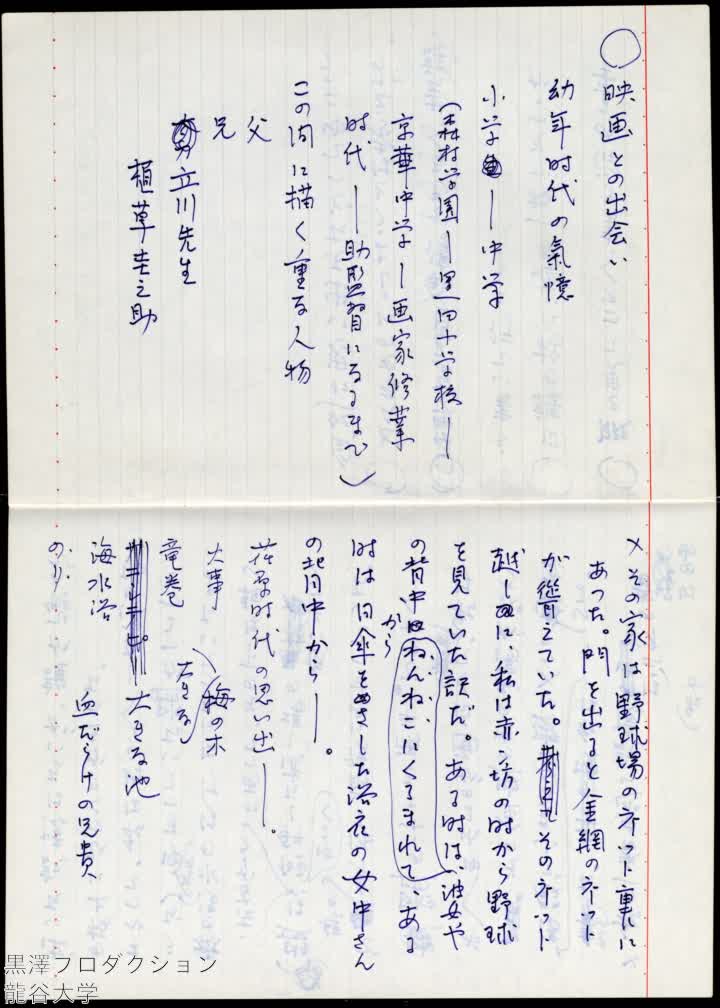 映画との出会い
幼年時代の氣憶
小学 ー中学
(森村学園ー黒田小学校ー
京華中学ー画家修業
時代ー助監督になるまで)
この間に描く重な人物
父
兄
立川先生
植草圭之助
×その家は野球場のネット裏に
あった。門を出ると金網のネット
が聳えていた。そのネット
越しに、私は赤ん坊の時から野球
を見ていた訳だ。ある時は、婆や
の背中からねんねこにくるまれて、ある
時は日傘をさした浴衣の女中さん
の背中からー。
荏原時代の思い出ー。
火事 梅の木
竜巻 大きな
大きな池
海水浴
のり。 血だらけの兄貴
黒澤プロダクション
龍谷大学